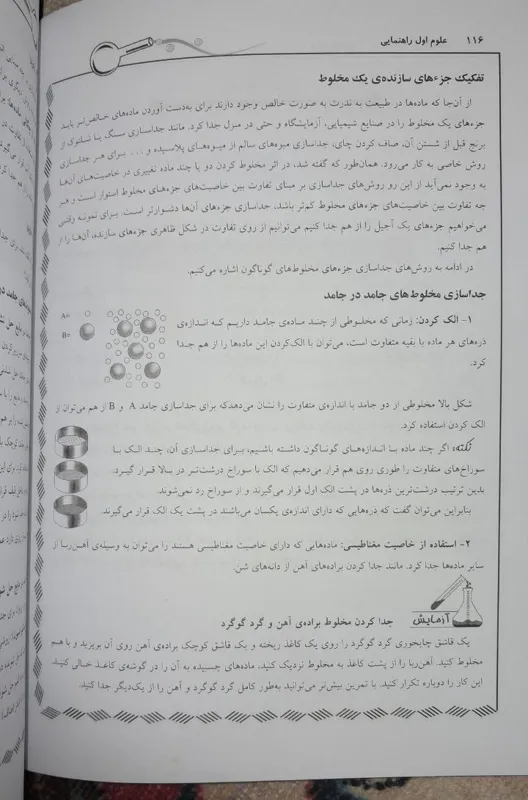 ۱۱۶ علوم اول راهنمایی
تفکیک جزءهای سازنده‌ی یک مخلوط
از آن‌جا که ماده‌ها در طبیعت به ندرت به صورت خالص وجود دارند برای به‌دست آوردن ماده‌های خالص‌تر باید
جزءهای یک مخلوط را در صنایع شیمیایی، آزمایشگاه و حتی در منزل جدا کرد. مانند جداسازی سنگ یا شلتوک از
برنج قبل از شستن آن، صاف کردن چای، جداسازی میوه‌های سالم از میوه‌های پلاسیده و ... برای هر جداسازی
روش خاصی به کار می‌رود. همان‌طور که گفته شد، در اثر مخلوط کردن دو یا چند ماده تغییری در خاصیت‌های آن‌ها
به وجود نمی‌آید از این رو روش‌های جداسازی بر مبنای تفاوت بین خاصیت‌های جزءهای مخلوط استوار است و هر
چه تفاوت بین خاصیت‌های جزءهای مخلوط کم‌تر باشد، جداسازی جزءهای آن‌ها دشوارتر است. برای نمونه وقتی
می‌خواهیم جزءهای یک آجیل را از هم جدا کنیم می‌توانیم از روی تفاوت در شکل ظاهری جزءهای سازنده، آن‌ها را از
هم جدا کنیم.
در ادامه به روش‌های جداسازی جزءهای مخلوط‌های گوناگون اشاره می‌کنیم.
جداسازی مخلوط‌های جامد در جامد
۱- الک کردن: زمانی که مخلوطی از چند ماده‌ی جامد داریم که اندازه‌ی
ذره‌های هر ماده با بقیه متفاوت است، می‌توان با الک‌کردن این ماده‌ها را از هم جدا
کرد.
A=
B=
شکل بالا مخلوطی از دو جامد با اندازه‌ی متفاوت را نشان می‌دهدکه برای جداسازی جامد A و B از هم می‌توان از
الک کردن استفاده کرد.
نکته: اگر چند ماده با اندازه‌های گوناگون داشته باشیم، برای جداسازی آن، چند الک با
سوراخ‌های متفاوت را طوری روی هم قرار می‌دهیم که الک با سوراخ درشت‌تر در بالا قرار گیرد.
بدین ترتیب درشت‌ترین ذره‌ها در پشت الک اول قرار می‌گیرند و از سوراخ رد نمی‌شوند.
بنابراین می‌توان گفت که ذره‌هایی که دارای اندازه‌ی یکسان می‌باشند در پشت یک الک قرار می‌گیرند.
۲- استفاده از خاصیت مغناطیسی: ماده‌هایی که دارای خاصیت مغناطیسی هستند را می‌توان به وسیله‌ی آهن‌ربا از
سایر ماده‌ها جدا کرد. مانند جدا کردن براده‌های آهن از دانه‌های شن.
آزمایش جدا کردن مخلوط براده‌ی آهن و گرد گوگرد
یک قاشق چایخوری گرد گوگرد را روی یک کاغذ ریخته و یک قاشق کوچک براده‌ی آهن روی آن بریزید و با هم
مخلوط کنید. آهن‌ربا را از پشت کاغذ به مخلوط نزدیک کنید، ماده‌های چسبیده به آن را در گوشه‌ی کاغذ خالی کنید.
این کار را دوباره تکرار کنید. با تمرین بیش‌تر می‌توانید به‌طور کامل گرد گوگرد و آهن را از یک‌دیگر جدا کنید.